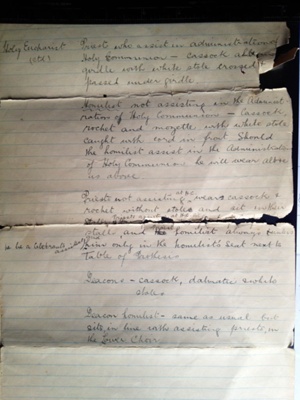 Holy Eucharist Priests who assist in administration of
(ctd.) Holy Communion - cassock alb
girdle with white stole crossed
passed under girdle.
Homilist not assisting in the Administ
ration of Holy Communion - Cassock,
rochet and mozetta, with white stole
caught with cord in front. Should
the homilist assist in the Administration
of Holy Communion he will wear
as above
Priests not assisting at H.C. wear cassock &
rochet without stole and sit in
Priests assisting at H.C.
stalls, and the homilist always
him only in the homilist's seat next to
Table of
Deacons - cassock, dalmatic & white
stole.
Deacon homilist - same as usual but
sits in line with assisting priests, in
the Lower Choir.